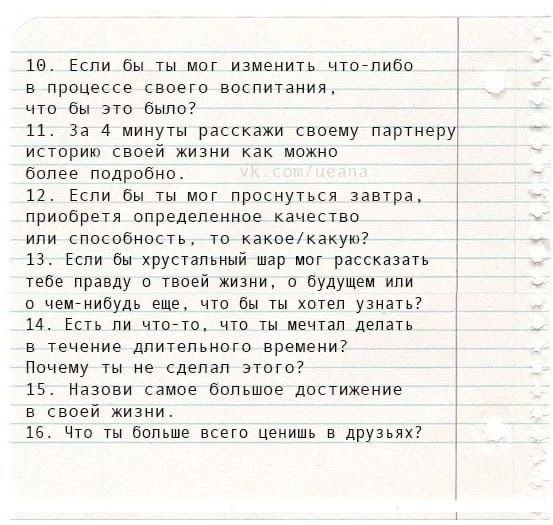 10. Если бы ты мог изменить что-либо
в процессе своего воспитания,
что бы это было?
11. За 4 минуты расскажи своему партнеру
историю своей жизни как можно
более подробно.
vk.com/ueana
12. Если бы ты мог проснуться завтра,
приобретя определенное качество
или способность, то какое/какую?
13. Если бы хрустальный шар мог рассказать
тебе правду о твоей жизни, о будущем или
о чем-нибудь еще, что бы ты хотел узнать?
14. Есть ли что-то, что ты мечтал делать
в течение длительного времени?
Почему ты не сделал этого?
15. Назови самое большое достижение
в своей жизни.
16. Что ты больше всего ценишь в друзьях?